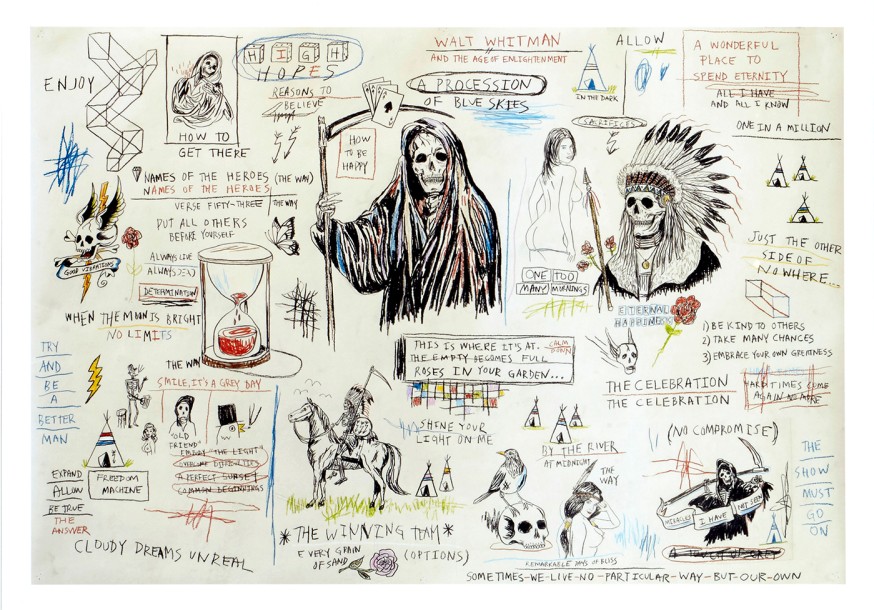 ENJOY
HIGH
HOPES
REASONS TO
BELIEVE
HOW TO
GET THERE
WALT WHITMAN
AND THE AGE OF ENLIGHTENMENT
A PROCESSION
OF BLUE SKIES
IN THE DARK
ALLOW
A WONDERFUL
PLACE TO
SPEND ETERNITY
ALL I HAVE
AND ALL I KNOW
ONE IN A MILLION
HOW
TO BE
HAPPY
(SACRIFICES)
NAMES OF THE HEROES (THE WAY)
NAMES OF THE HEROES
VERSE FIFTY-THREE THE WAY
PUT ALL OTHERS
BEFORE YOURSELF
GOOD VIBRATIONS
ALWAYS LIVE
ALWAYS
DETERMINATION
WHEN THE MOON IS BRIGHT
NO LIMITS
JUST THE OTHER
SIDE OF
NOWHERE...
ONE TOO
MANY MORNINGS
ETERNAL
HAPPINESS
1) BE KIND TO OTHERS
2) TAKE MANY CHANCES
3) EMBRACE YOUR OWN GREATNESS
THIS IS WHERE IT'S AT. CALM
DOWN
THE EMPTY BECOMES FULL
ROSES IN YOUR GARDEN...
TRY
AND
BE
A
BETTER
MAN
THE WAY
SMILE, IT'S A GREY DAY
"OLD
FRIEND"
ENJOY "THE LIGHT"
A PERFECT SUNSET
COMMON BEGINNINGS
THE CELEBRATION
THE CELEBRATION
HARD TIMES COME
AGAIN NO MORE
SHINE YOUR
LIGHT ON ME
BY THE RIVER
AT MIDNIGHT
THE
WAY
(NO COMPROMISE)
MIRACLES I HAVE NOT SEEN
THE
SHOW
MUST
GO
ON
EXPAND
ALLOW
BE TRUE
THE
ANSWER
FREEDOM
MACHINE
CLOUDY DREAMS UNREAL
*THE WINNING TEAM*
EVERY GRAIN
OF SAND
(OPTIONS)
REMARKABLE DAYS OF BLISS
SOMETIMES-WE-LIVE-NO-PARTICULAR-WAY-BUT-OUR-OWN